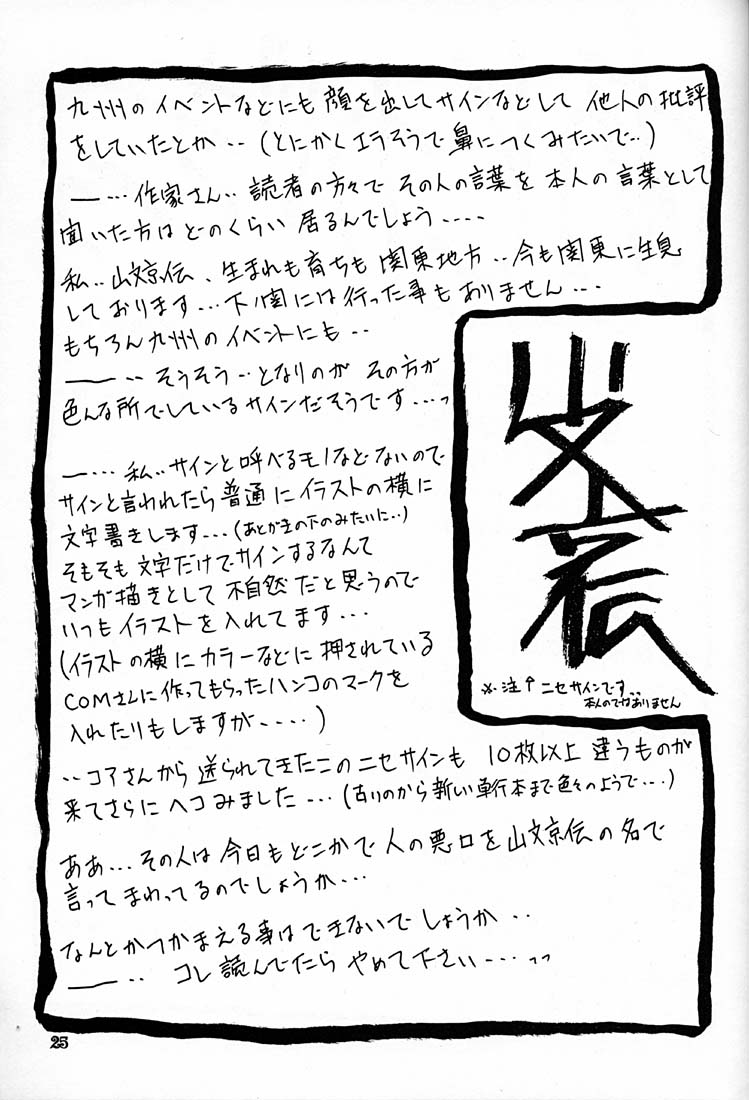 九州のイベントなどにも顔を出してサインなどして 他人の批評
をしていたとか‥(とにかくエラそうで鼻につくみたいで‥)
―…作家さん‥読者の方々で その人の言葉を 本人の言葉として
聞いた方は どのくらい 居るんでしょう‥‥
私‥山文京伝、生まれも育ちも 関東地方‥今も関東に生息
しております…下ノ関には行った事もありません‥‥
もちろん九州のイベントにも‥
―‥そうそう‥となりのが その方が
色んな所でしているサインだそうです…っ
―…私‥サインと呼べるモノなどないので
サインと言われたら普通にイラストの横に
文字書きします…(あとがきの下のみたいに‥)
そもそも文字だけでサインするなんて
マンガ描きとして 不自然だと思うので
いつもイラストを入れてます…
(イラストの横にカラーなどに押されている
COMさんに作ってもらったハンコのマークを
入れたりもしますが‥‥)
山文京伝
※注↑ニセサインです‥
本人のではありません
‥コアさんから送られてきたこのニセサインも 10枚以上違うものが
来てさらにヘコみました…(古いのから新しい単行本まで色々のようで…)
ああ…その人は今日もどこかで人の悪口を山文京伝の名で
言ってまわってるのでしょうか…
なんとかつかまえる事はできないでしょうか‥
―‥ コレ読んでたら やめて下さい…っっ
25